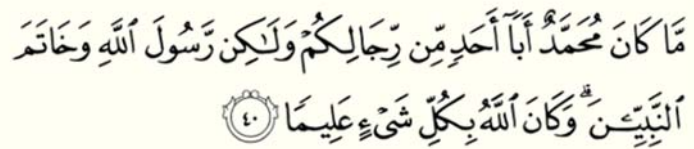 مَّا كَانَ مُحَمَّدٌ أَبَآ أَحَدٍ مِّن رِّجَالِكُمْ وَلَٰكِن رَّسُولَ ٱللَّهِ وَخَاتَمَ
ٱلنَّبِيِّـۧنَ ۗ وَكَانَ ٱللَّهُ بِكُلِّ شَىْءٍ عَلِيمًا ٤٠